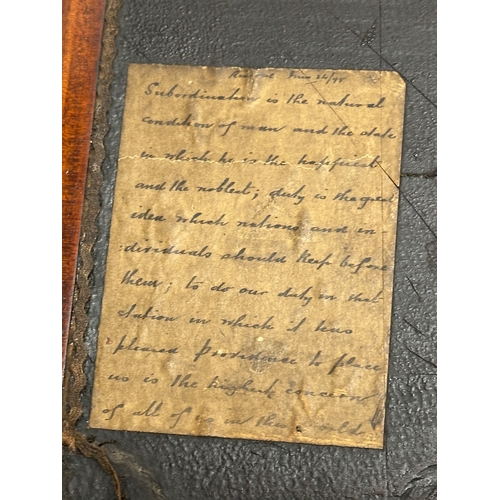 Subordination is the natural
condition of man and the state
in which he is the happiest
and the noblest; duty is the great
idea which nations and in-
dividuals should keep before
them; to do our duty in that
station in which it has
pleased providence to place
us is the highest concern
of all of us in this world